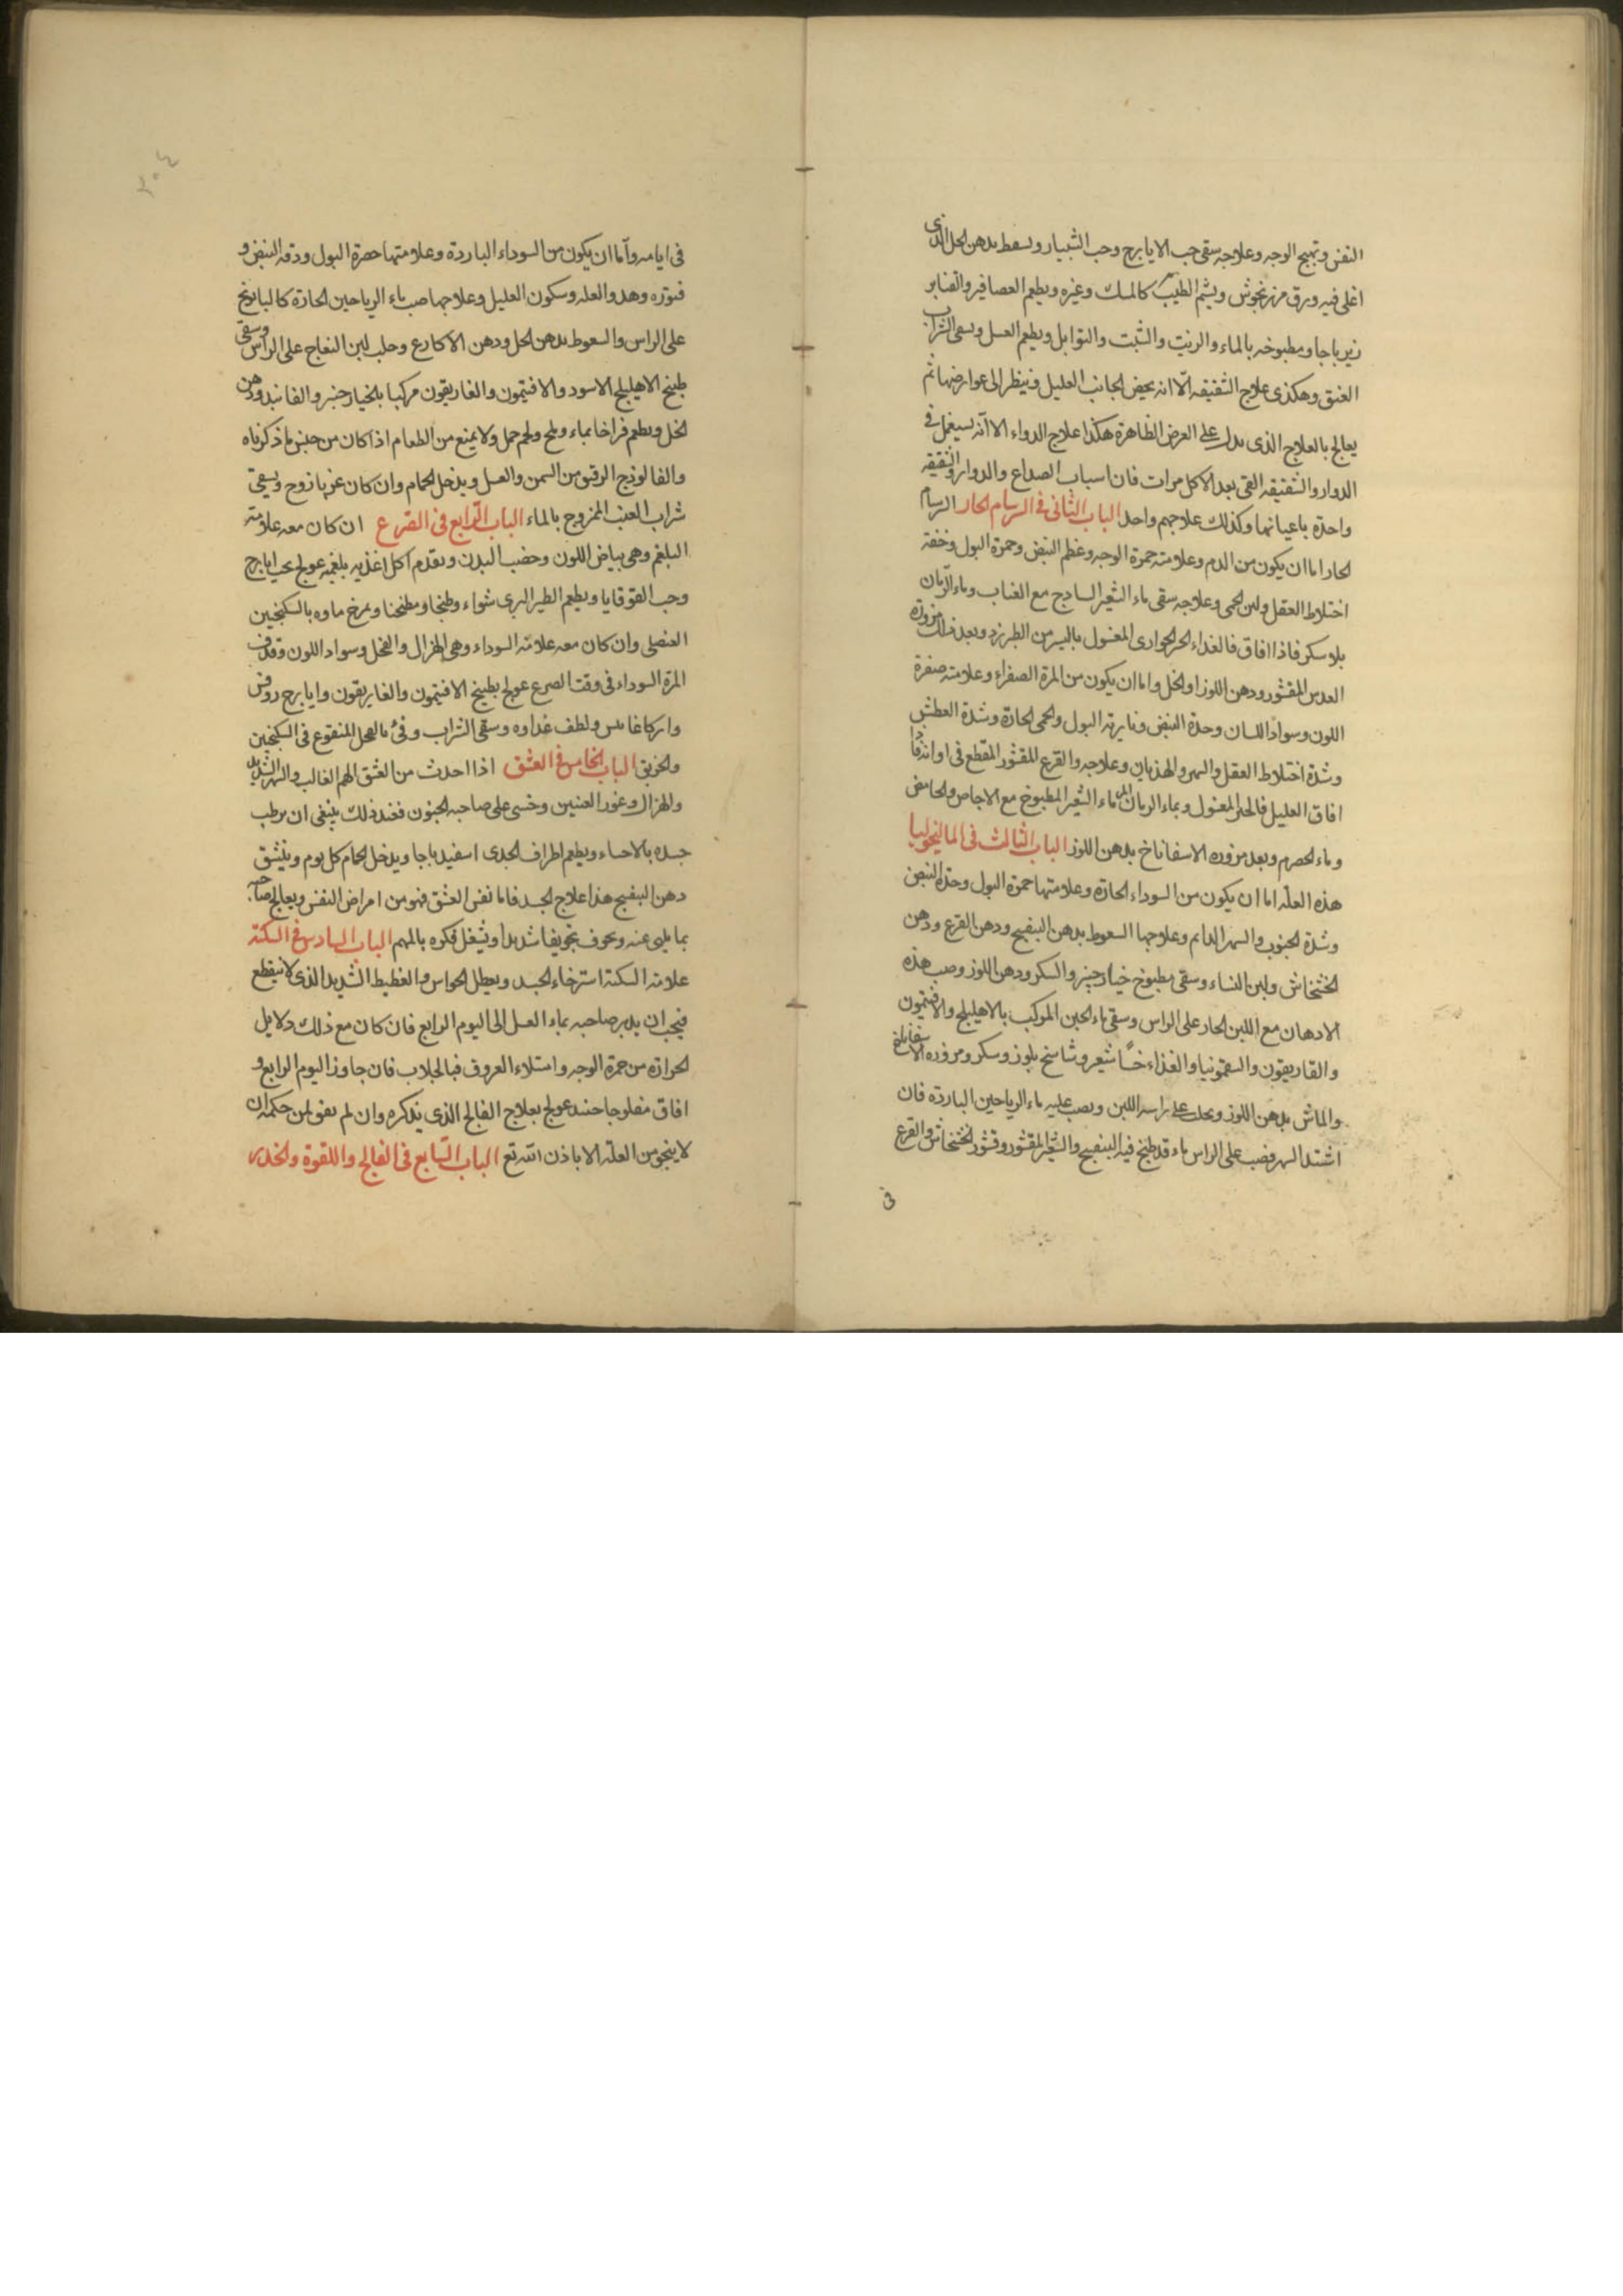 النفس وتهيج الوجه وعلاجه سقى حب الايارج وحب الشبيار ويسعط بدهن الخل الذى
اغلى فيه ورق مرزنجوش ويشم الطيب كالمسك وغيره ويطعم العصافير والقنابر
زيرباجا ومطبوخه بالماء والزيت والشبت والتوابل ويطعم العسل ويسقى الشراب
العتيق وهكذى علاج الشقيقه الّا انه يخص الجانب العليل فينظر الى عوارضها ثم
يعالج بالعلاج الذى يدل على العرض الظاهرة هكذا علاج الدواء الا انّه يستعمل فى
الدوار والشقيقه القى بعد الاكل مرات فان اسباب الصداع والدوار والشقيقه
واحدة باعيانها وكذلك علاجهم واحد الباب الثانى فى السرسام الحار السرسام
الحار اما ان يكون من الدم وعلامته حمرة الوجه وعظم النبض وحمرة البول وخفة
اختلاط العقل ولين الحمى وعلاجه سقى ماء الشعير الساذج مع العناب وماء الرّمان
بلا سكر فاذا افاق فالغذاء الخبز الحوارى المغسول باليسير من الطبرزد وبعد ذلك مزورة
العدس المقشور ودهن اللوز او الخل واما ان يكون من المرة الصفراء وعلامته صفرة
اللون وسواد اللسان وحدة النبض وناريه البول والحمى الحادة وشدة العطش
وشدة اختلاط العقل والسهر والهذيان وعلاجه والقرع المقشور المقطع فى اوانه فاذا
افاق العليل فالخبز المغسول وبماء الرمان المز ماء الشعير المطبوخ مع الاجاص والحامض
وماء الحصرم وبعد مزوره الاسفاناخ بدهن اللوز الباب الثالث فى الماليخوليا
هذه العلّه اما ان يكون من السوداء الحادة وعلامتها حمرة البول وحدة النبض
وشدة الجنون والسهر الدائم وعلاجها السعوط بدهن البنفسج ودهن القرع ودهن
الخشخاش ولبن النساء وسقى مطبوخ خيارجنبر والسكر ودهن اللوز وصب هذه
الادهان مع اللبن الحار على الراس وسقى ماء الجبن المركب بالاهليلج والافتيمون
والغاريقون والسقمونيا والغذاء حسا شعير ونشاستج بلوز وسكر ومزوره الاسفاناخ
والماش بدهن اللوز ويحلب على راسه اللبن ويصب عليه ماء الرياحين الباردة فان
اشتد السهر فصب على الراس ماء قد طبخ فيه البنفسج والشعير المقشور وقشور الخشخاش والقرع
فى
٢٠٤
فى ايامه وامّا ان يكون من السوداء الباردة وعلامتها خضرة البول ودقه النبض و
فتوره وهدو العله وسكون العليل وعلاجها صب ماء الرياحين الحارة كالبابونج
على الراس والسعوط بدهن الخل ودهن الاكارع وحلب لبن النعاج على الراس وسقى
طبيخ الاهليلج الاسود والافتيمون والغاريقون مركبا بالخيارجنبر والفانيد ودهن
الخل ويطعم فراخا بماء وملح ولحم حمل ولا يمنع من الطعام اذا كان من جنس ما ذكرناه
والفالوذج الرقيق من السمن والعسل ويدخل الحمام وان كان عزبا زوج ويسقى
شراب العنب الممزوج بالماء الباب الرّابع فى الصرع ان كان معه علامة
البلغم وهى بياض اللون وخصب البدن وتقدم اكل اغذيه بلغميه عولج بحب ايارج
وحب القوقايا ويطعم الطير البرى شواء وطبخا ومطجنا ويمزج ماوه بالسكنجبين
العنصلى وان كان معه علامة السوداء وهى الهزال والنحل وسواد اللون وقذف
المرة السوداء فى وقت الصرع عولج بطبيخ الافتيمون والغاريقون وايارج روفس
واركاغانس ولطف غداوه وسقى الشراب وقئ بالفجل المنقوع فى السكنجبين
والخربق الباب الخامس فى العشق اذا احدث من العشق الهم الغالب والسهر الشديد
والهزال وغور العينين وخشى على صاحبه الجنون فعند ذلك ينبغى ان يرطب
جسده بالاحساء ويطعم اطراف الجدى اسفيدباجا ويدخل الحمام كل يوم وينشق
دهن البنفسج هذا علاج الجسد فاما نفس العشق فهو من امراض النفس ويعالج صاحبه
بما يلهى عنه ويخوف تخويفا شديدا ويشغل فكره بالمهم الباب السادس فى السكتة
علامة السكتة استرخاء الجسد وتعطل الحواس والغطيط الشديد الذى لا ينقطع
فيجب ان يدبر صاحبه بماء العسل الى اليوم الرابع فان كان مع ذلك دلايل
الحرارة من حمرة الوجه وامتلاء العروق فبالجلاب فان جاوز اليوم الرابع و
افاق مفلوجا حينئذ عولج بعلاج الفالج الذى نذكره وان لم يفق فمن حكمه ان
لا ينجو من العلّة الا باذن الله تع الباب السّابع فى الفالج واللقوة والخدر